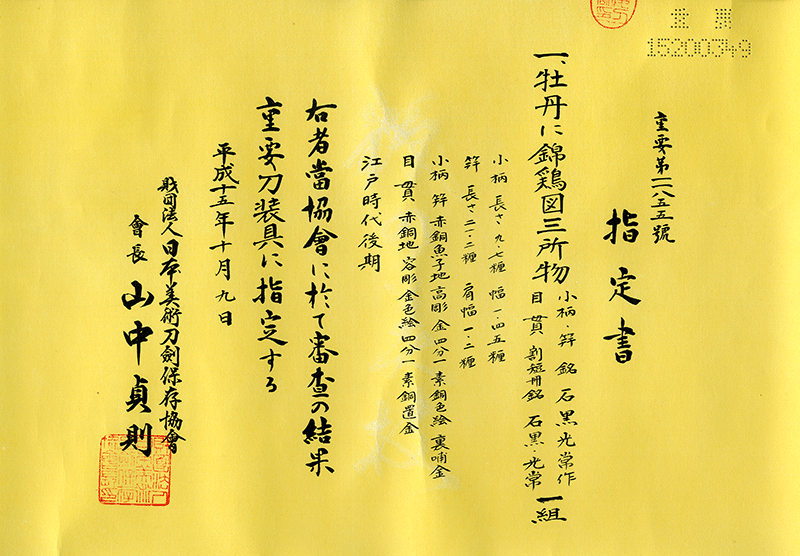 重要
15200349
重要第一八五五號
指定書
一、牡丹に錦鶏図三所物 小柄・笄 銘 石黒光常作 一組
目貫 割短冊銘 石黒・光常
小柄 長さ九・七糎 幅一・四五糎
笄 長さ二一・二糎 肩幅一・二糎
小柄 笄 赤銅魚子地 高彫 金 四分一 素銅色絵 裏哺金
目貫 赤銅地 容彫 金色絵 四分一 素銅置金
江戸時代後期
右者當協會に於て審査の結果
重要刀装具に指定する
平成十五年十月九日
財団法人日本美術刀劍保存協會
會長 山中貞則